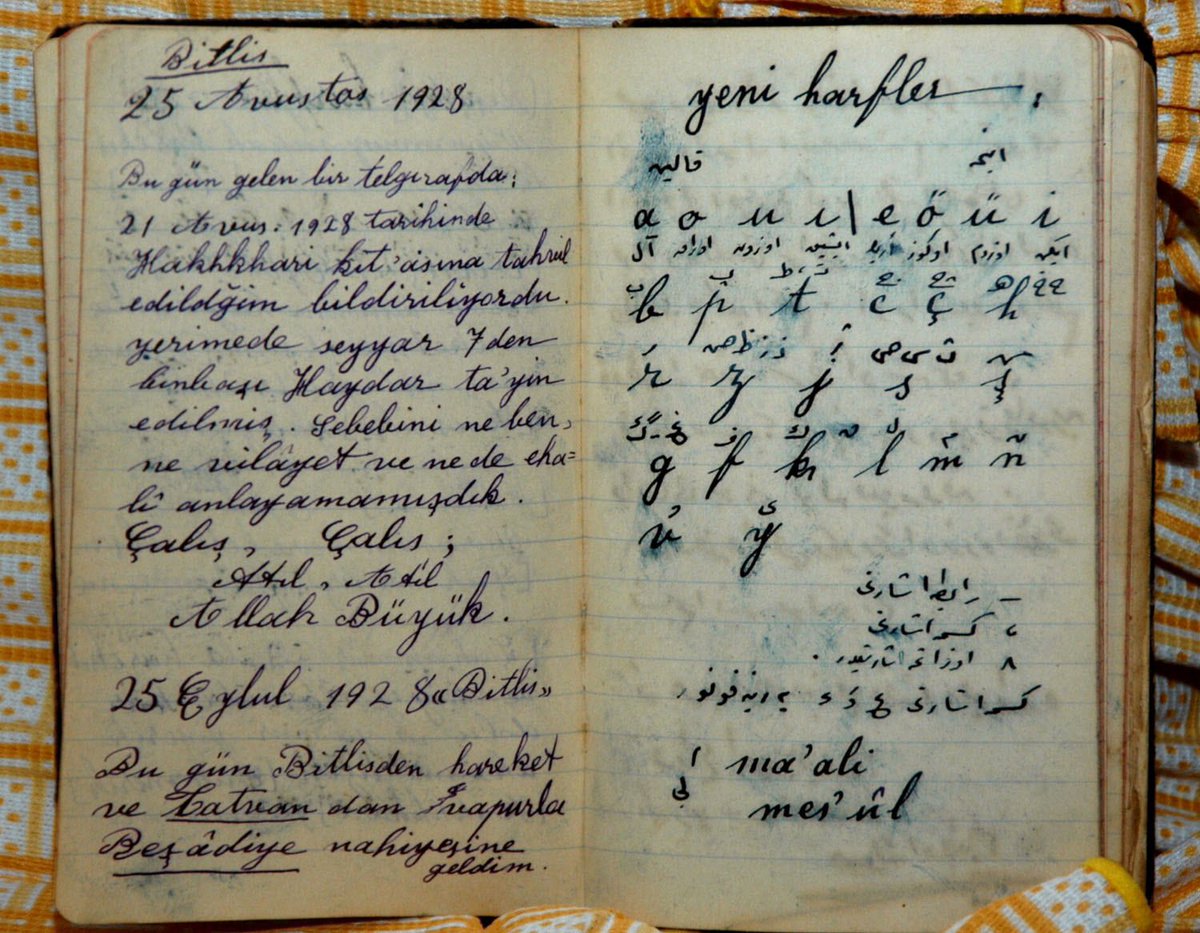 Bitlis
25 Avustos 1928
Bu gün gelen bir telgırafda:
21 Avus: 1928 tarihinde
Hakhkhari kıt'asına tahvil
edildğim bildiriliyordu.
yerimede seyyar 7den
binbaşı Haydar ta'yin
edilmiş. Sebebini ne ben,
ne vilâyet ve nede eha=
lî anlayamamışdık.
Çalış, Çalış;
Atıl, Atıl
Allah Büyük.
25 Eylul 1928 «Bitlis»
Bu gün Bitlisden hareket
ve Tatvan dan vapurla
Reşâdiye nahiyesine
geldim.
yeni harfler
قالين اينجه
a o u ı | e ö ü i
b p t c ç h
ر
r z j s ş
g f k l m n
v y
ـ رابطه اشارتى
، كسمه اشارتى
٨ اوزاتمه اشارتيدر .
كسمه اشارتى ع و ء يرينه قونور
ma'ali
mes'ûl